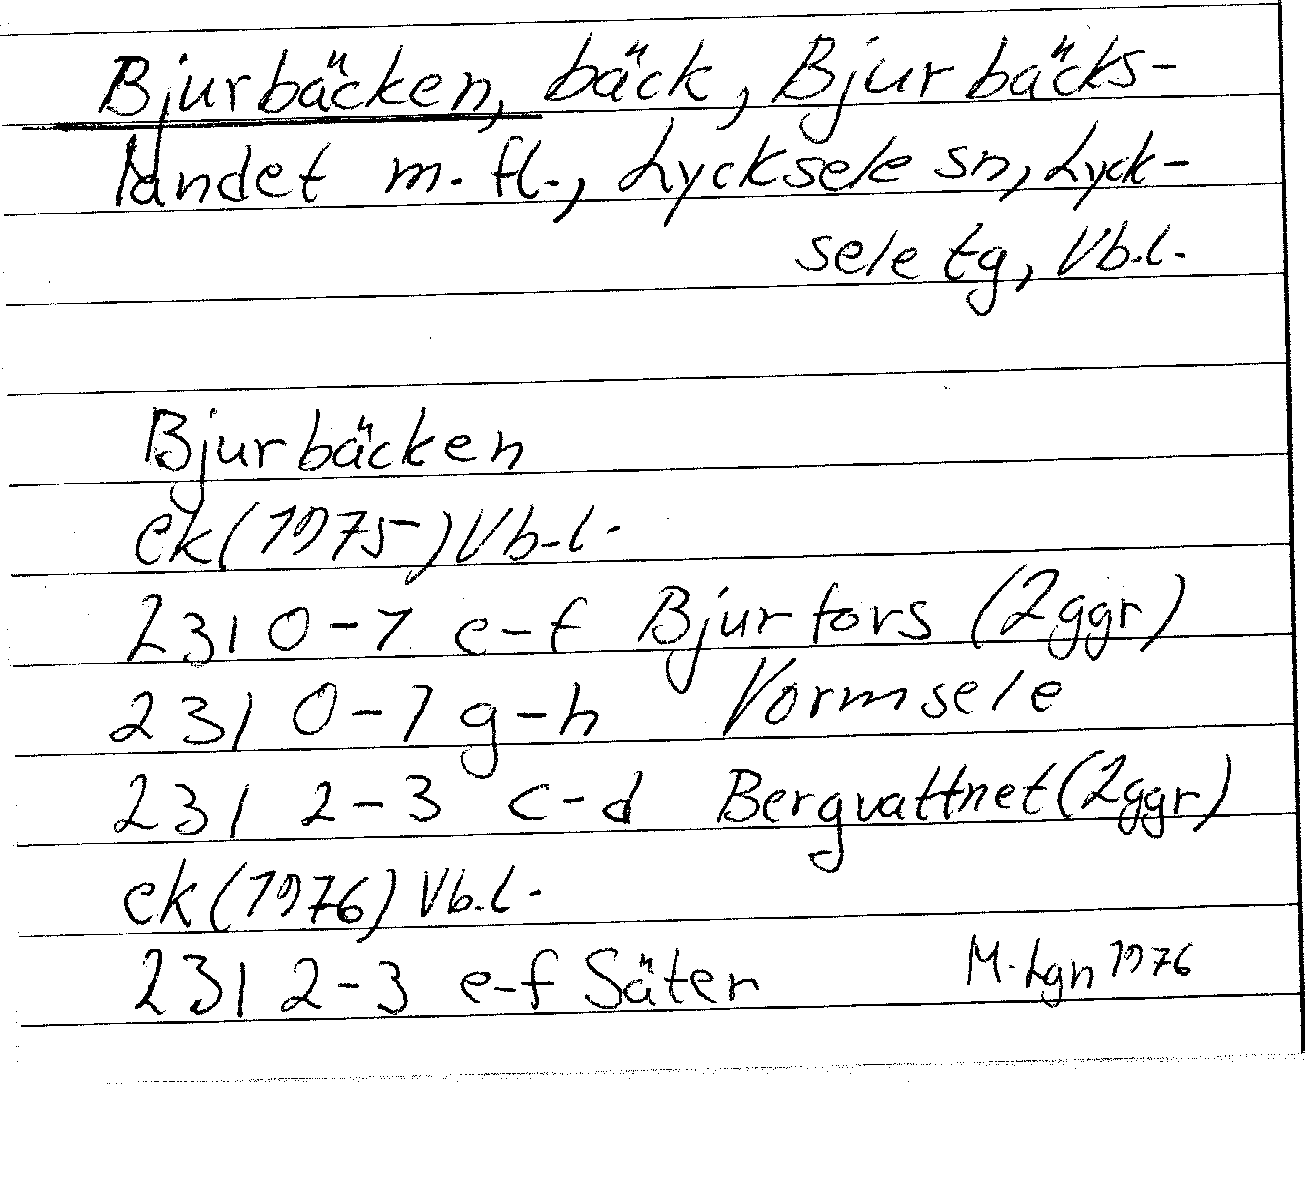 Bjurbäcken, bäck, Bjurbäcks-
landet m.fl., Lycksele sn, Lyck-
sele tg, Vb.l.
Bjurbäcken
ek(1975)Vb.l.
231 0-1 e-f Bjurfors (2ggr)
231 0-1 g-h Vormsele
231 2-3 c-d Bergvattnet(2ggr)
ek(1976) Vb.l.
231 2-3 e-f Säter M.Lgn 1976